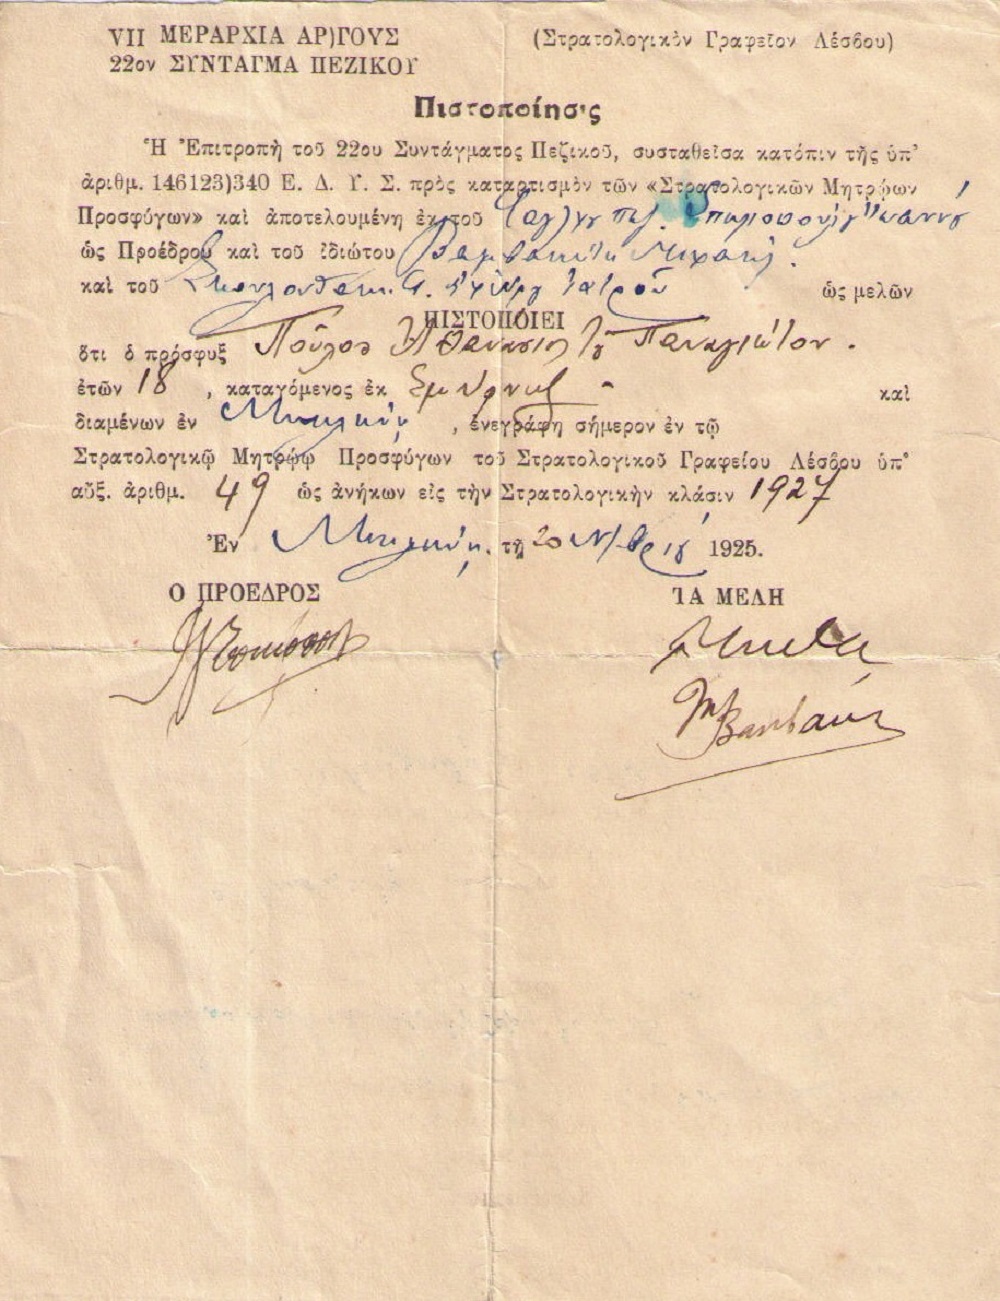 VII ΜΕΡΑΡΧΙΑ ΑΡ)ΓΟΥΣ
22ον ΣΥΝΤΑΓΜΑ ΠΕΖΙΚΟΥ
(Στρατολογικὸν Γραφεῖον Λέσβου)
Πιστοποίησις
Ἡ Ἐπιτροπὴ τοῦ 22ου Συντάγματος Πεζικοῦ, συσταθεῖσα κατόπιν τῆς ὑπ'
ἀριθμ. 146123)340 Ε. Δ. Υ. Σ. πρὸς καταρτισμὸν τῶν «Στρατολογικῶν Μητρώων
Προσφύγων» καὶ ἀποτελουμένη ἐκ τοῦ
ὡς Προέδρου καὶ τοῦ ἰδιώτου
καὶ τοῦ ὡς μελῶν
ΠΙΣΤΟΠΟΙΕΙ
ὅτι ὁ πρόσφυξ Ποῦλος Ἀθανάσιος τοῦ Παναγιώτου.
ἐτῶν 18, καταγόμενος ἐκ Σμύρνης - καὶ
διαμένων ἐν Μυτιλήνῃ, ἐνεγράφη σήμερον ἐν τῷ
Στρατολογικῷ Μητρώῳ Προσφύγων τοῦ Στρατολογικοῦ Γραφείου Λέσβου ὑπ'
αὔξ. ἀριθμ. 49 ὡς ἀνήκων εἰς τὴν Στρατολογικὴν κλάσιν 1927
Ἐν Μυτιλήνῃ, τῇ 20 Ν/βρίου 1925.
Ο ΠΡΟΕΔΡΟΣ
ΤΑ ΜΕΛΗ